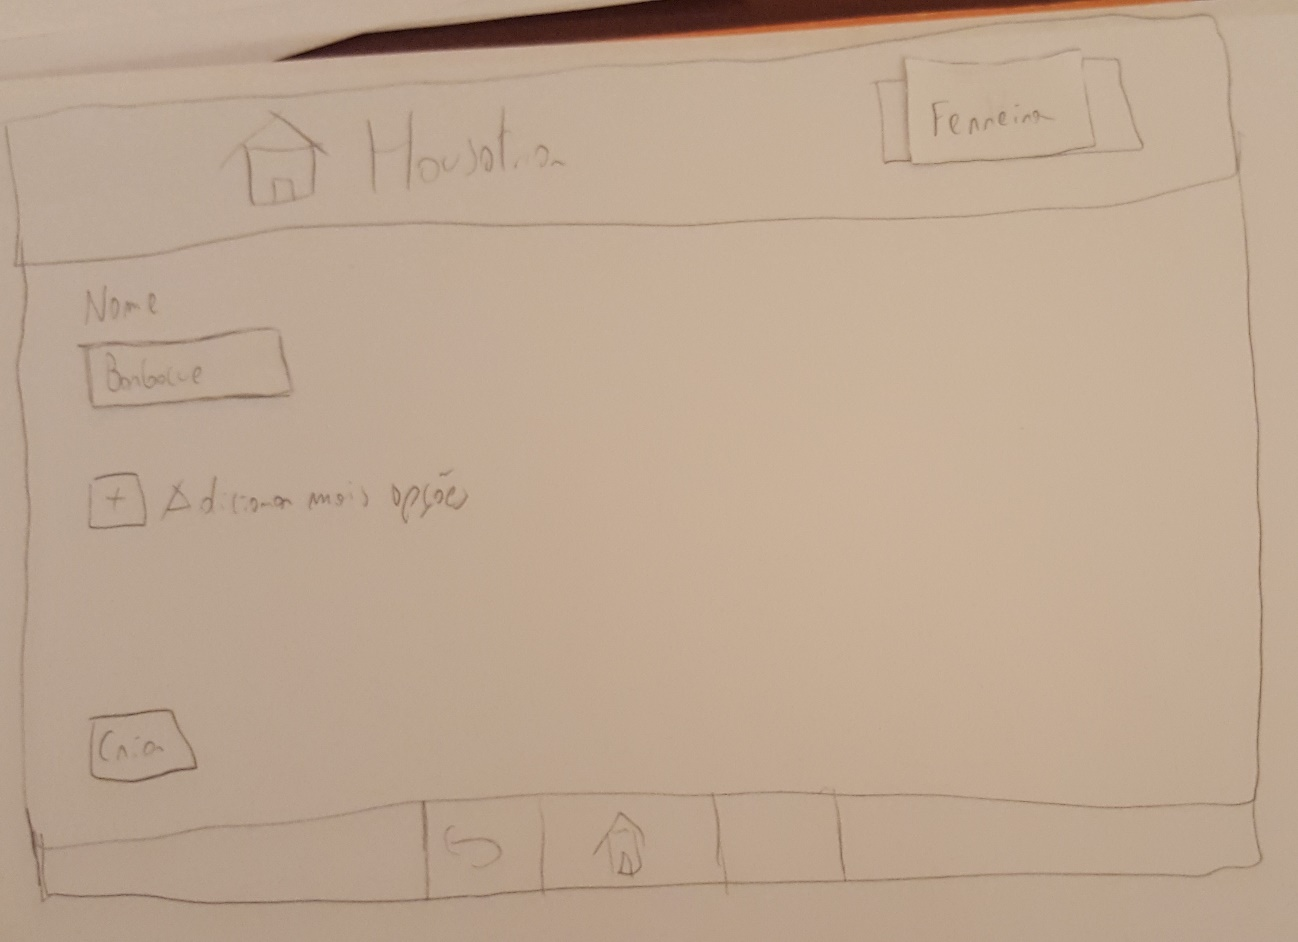 Housotron
Ferreira
Nome
Barbacue
+ Adicionar mais opções
Criar